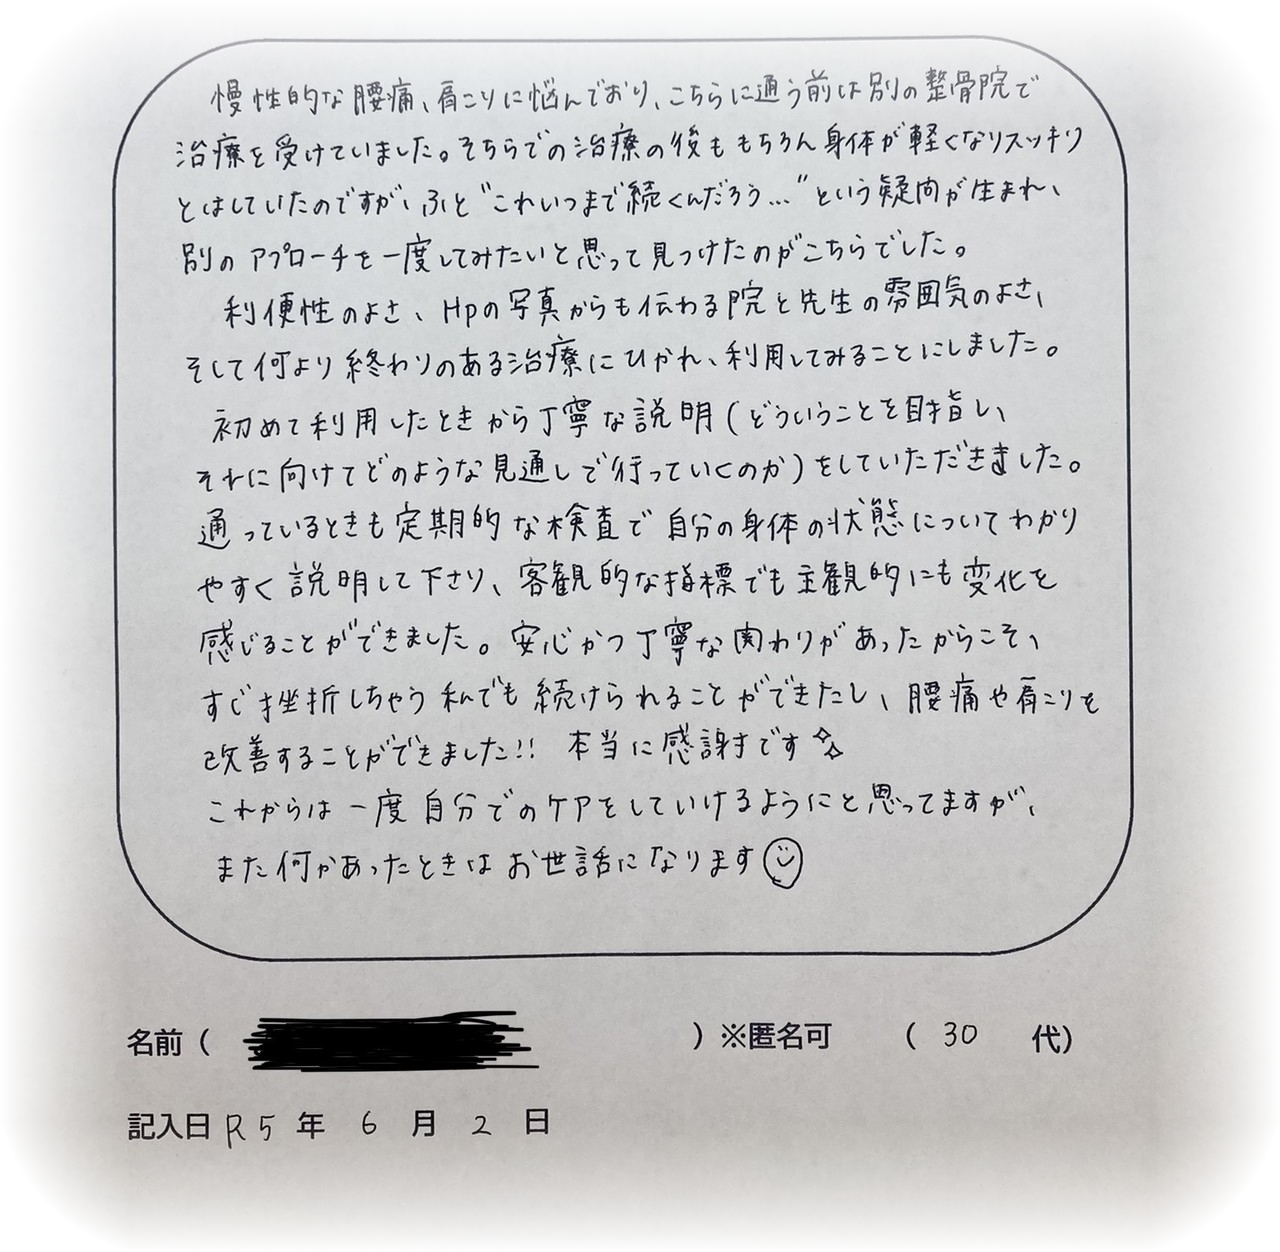 慢性的な腰痛、肩こりに悩んでおり、こちらに通う前は別の整骨院で
治療を受けていました。そちらでの治療の後ももちろん身体が軽くなりスッキリ
とはしていたのですが、ふと"これいつまで続くんだろう…"という疑問が生まれ、
別のアプローチを一度してみたいと思って見つけたのがこちらでした。
利便性のよさ、Hpの写真からも伝わる院と先生の雰囲気のよさ、
そして何より終わりのある治療にひかれ、利用してみることにしました。
初めて利用したときから丁寧な説明(どういうことを目指し、
それに向けてどのような見通しで行っていくのか)をしていただきました。
通っているときも定期的な検査で自分の身体の状態についてわかり
やすく説明して下さり、客観的な指標でも主観的にも変化を
感じることができました。安心かつ丁寧な関わりがあったからこそ、
すぐ挫折しちゃう私でも続けられることができたし、腰痛や肩こりを
改善することができました!! 本当に感謝です✧
これからは一度自分でのケアをしていけるようにと思ってますが、
また何かあったときはお世話になります☺
名前( )※匿名可 ( 30 代)
記入日 R5 年 6 月 2 日